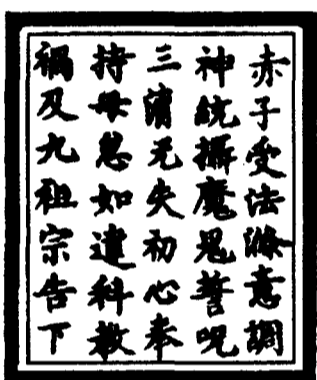 赤子受法滌意調
神統攝魔鬼誓呪
三清无失初心奉
持毋怠如違科教
禍及九祖宗告下